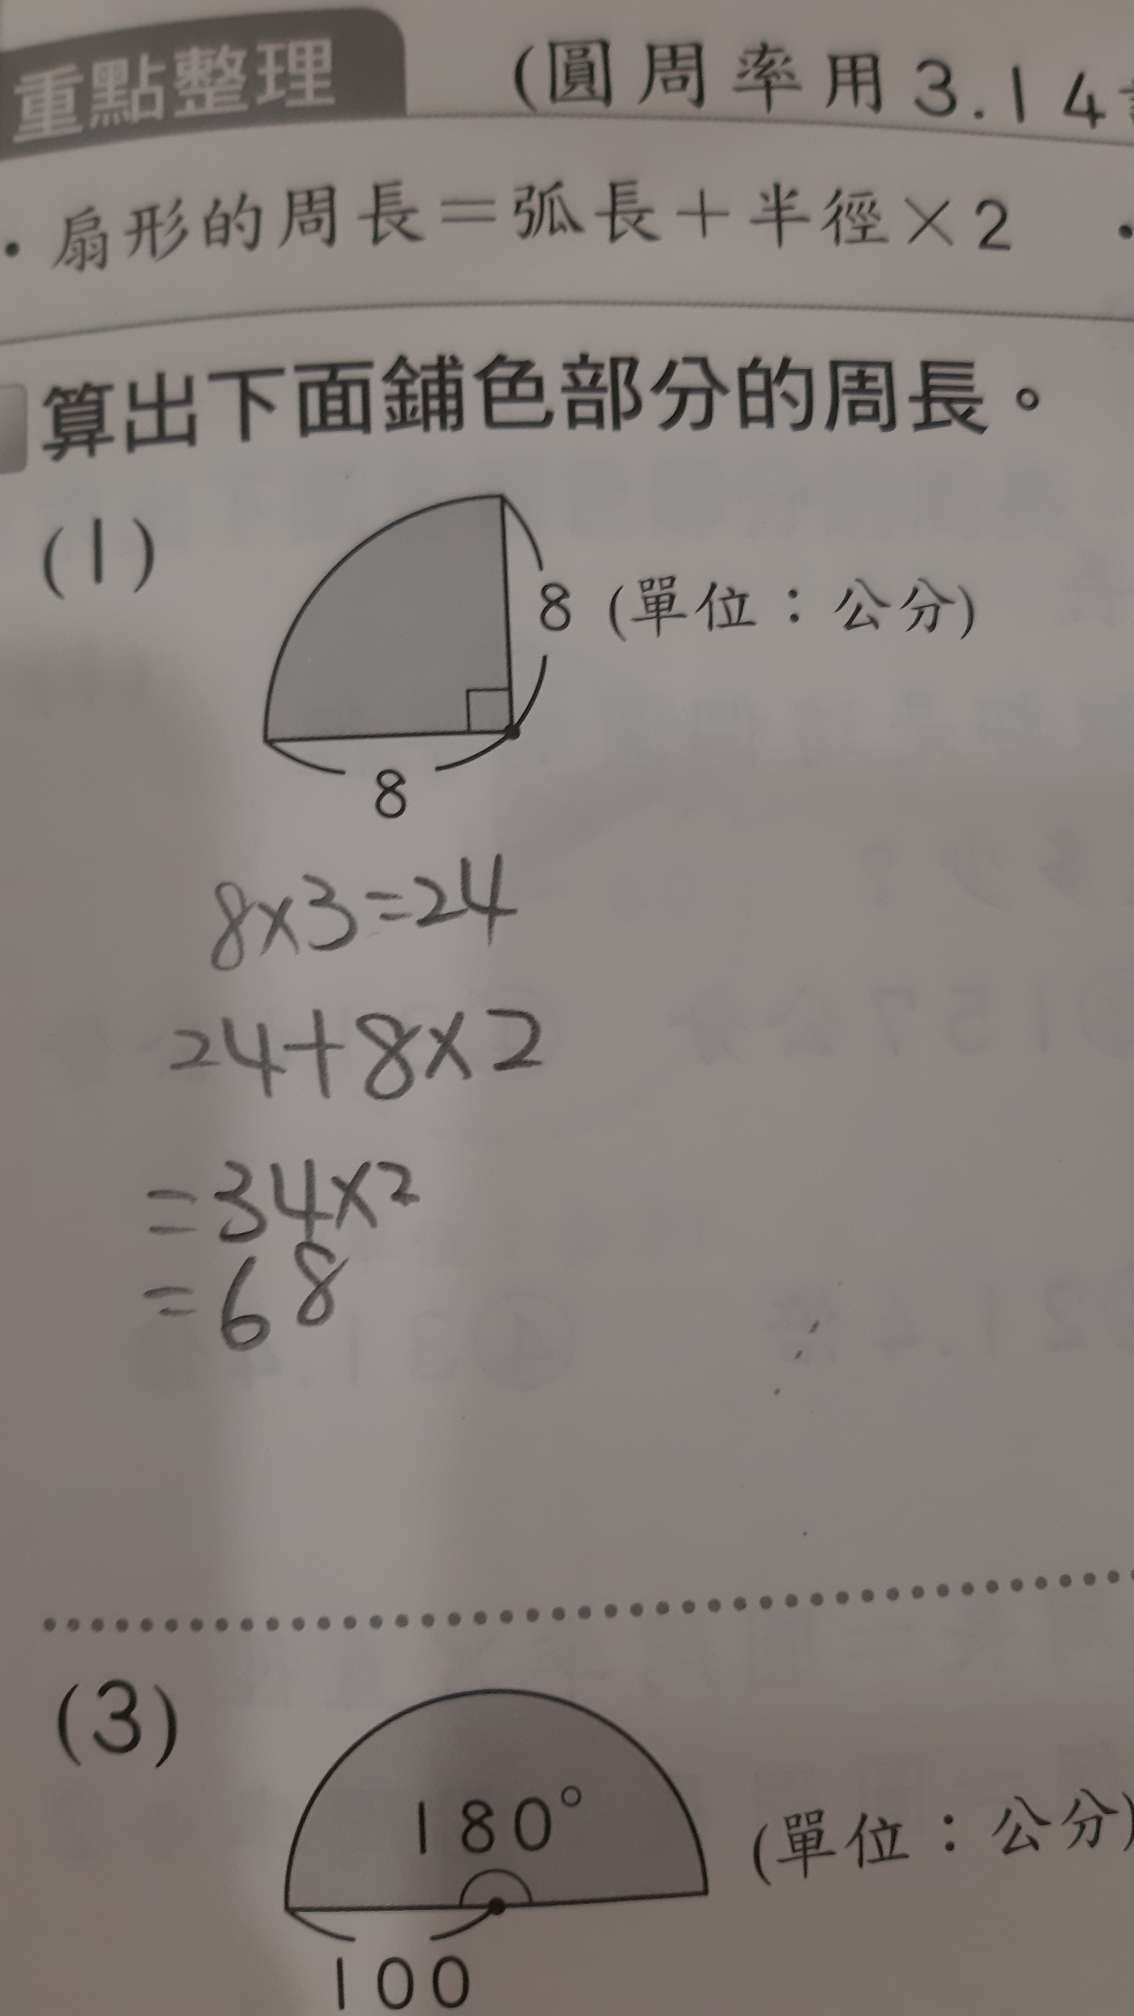 重點整理
(圓周率用3.14
·扇形的周長＝弧長＋半徑×2 ·
算出下面鋪色部分的周長。
(1)
8 (單位：公分)
8
8×3=24
24+8×2
=34×2
=68
(3)
180°
(單位：公分)
100